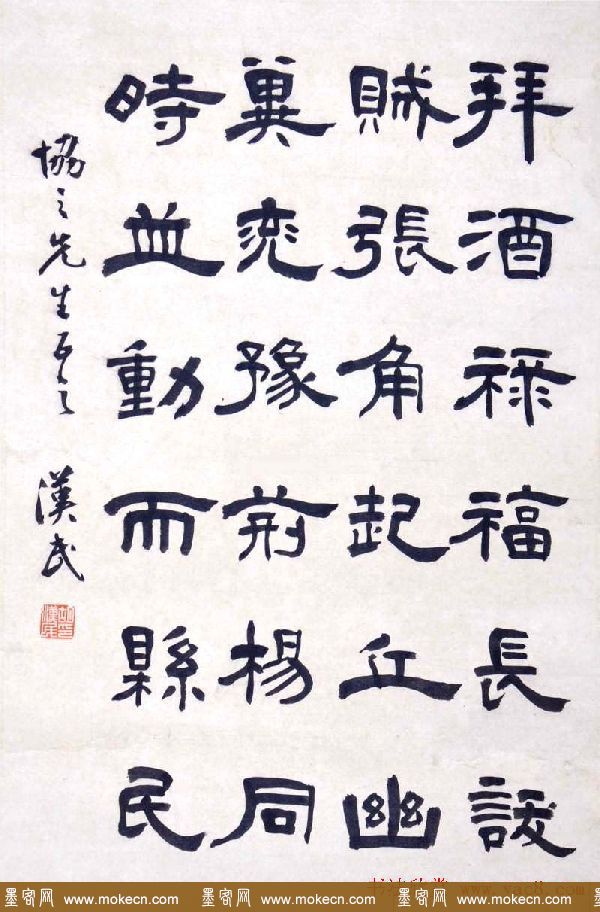 拜酒祿福長訞
賊張角起丘幽
冀兗豫荊楊同
時並動而縣民
協之先生正之 漢民
墨客网 www.mokecn.com 墨客网 www.mokecn.com 墨客网 www.mokecn.com